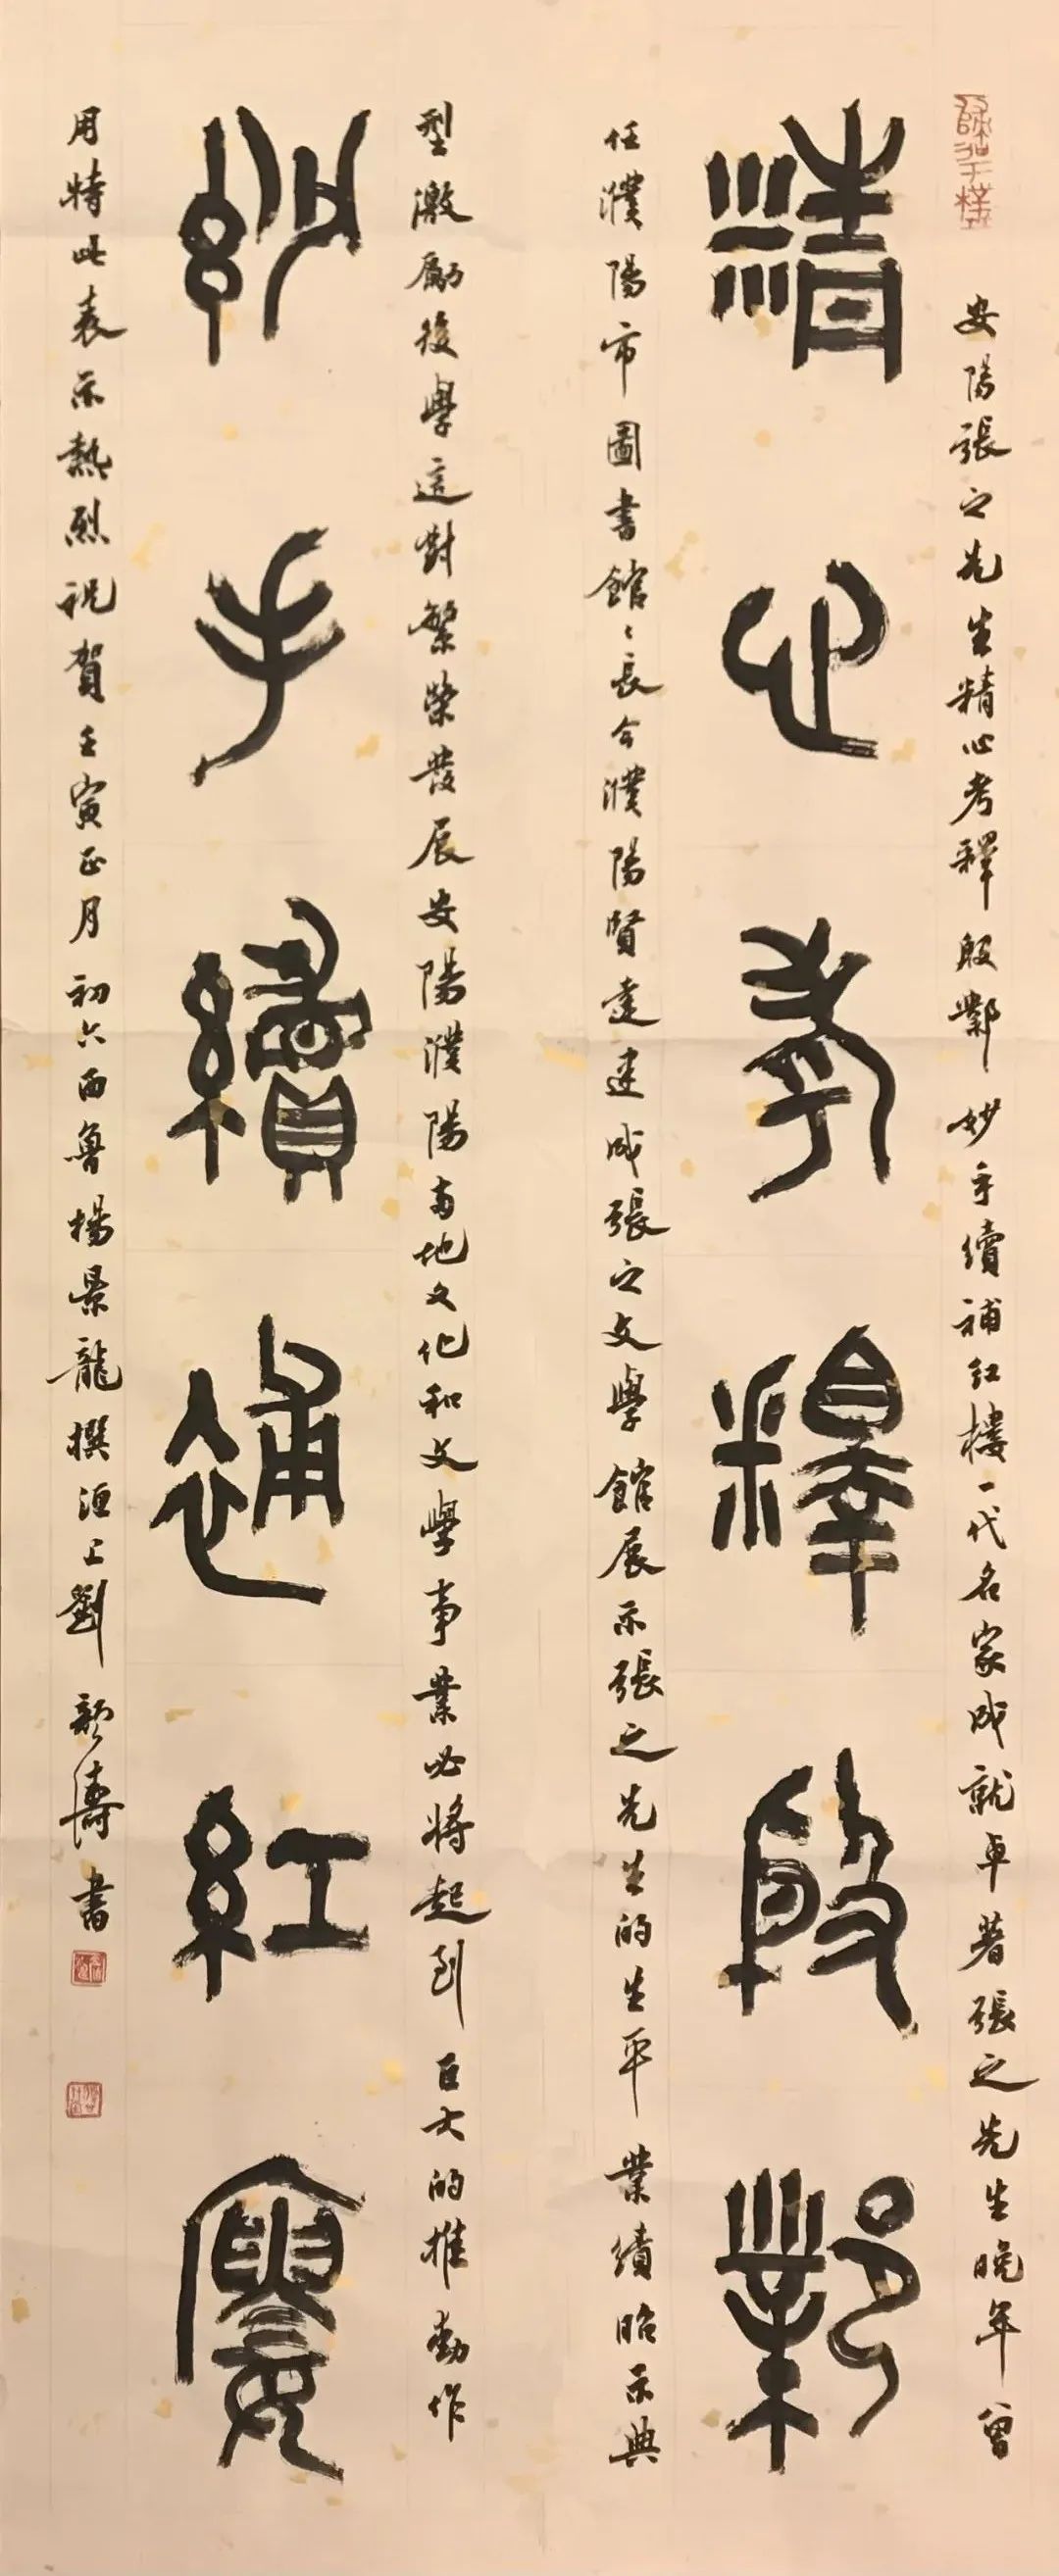 安陽張之先生精心考釋殷鄴妙手續補紅樓一代名家成就卓著張之先生晚年曾
精心考釋殷鄴
任濮陽市圖書館〻長今濮陽賢達建成張之文學館展示張之先生的生平業績昭示典
型激勵後學這對繁榮發展安陽濮陽兩地文化和文學事業必將起到巨大的推動作
妙手續補紅樓
用特此表示熱烈祝賀壬寅正月初六西魯楊景龍撰洹上劉顏濤書